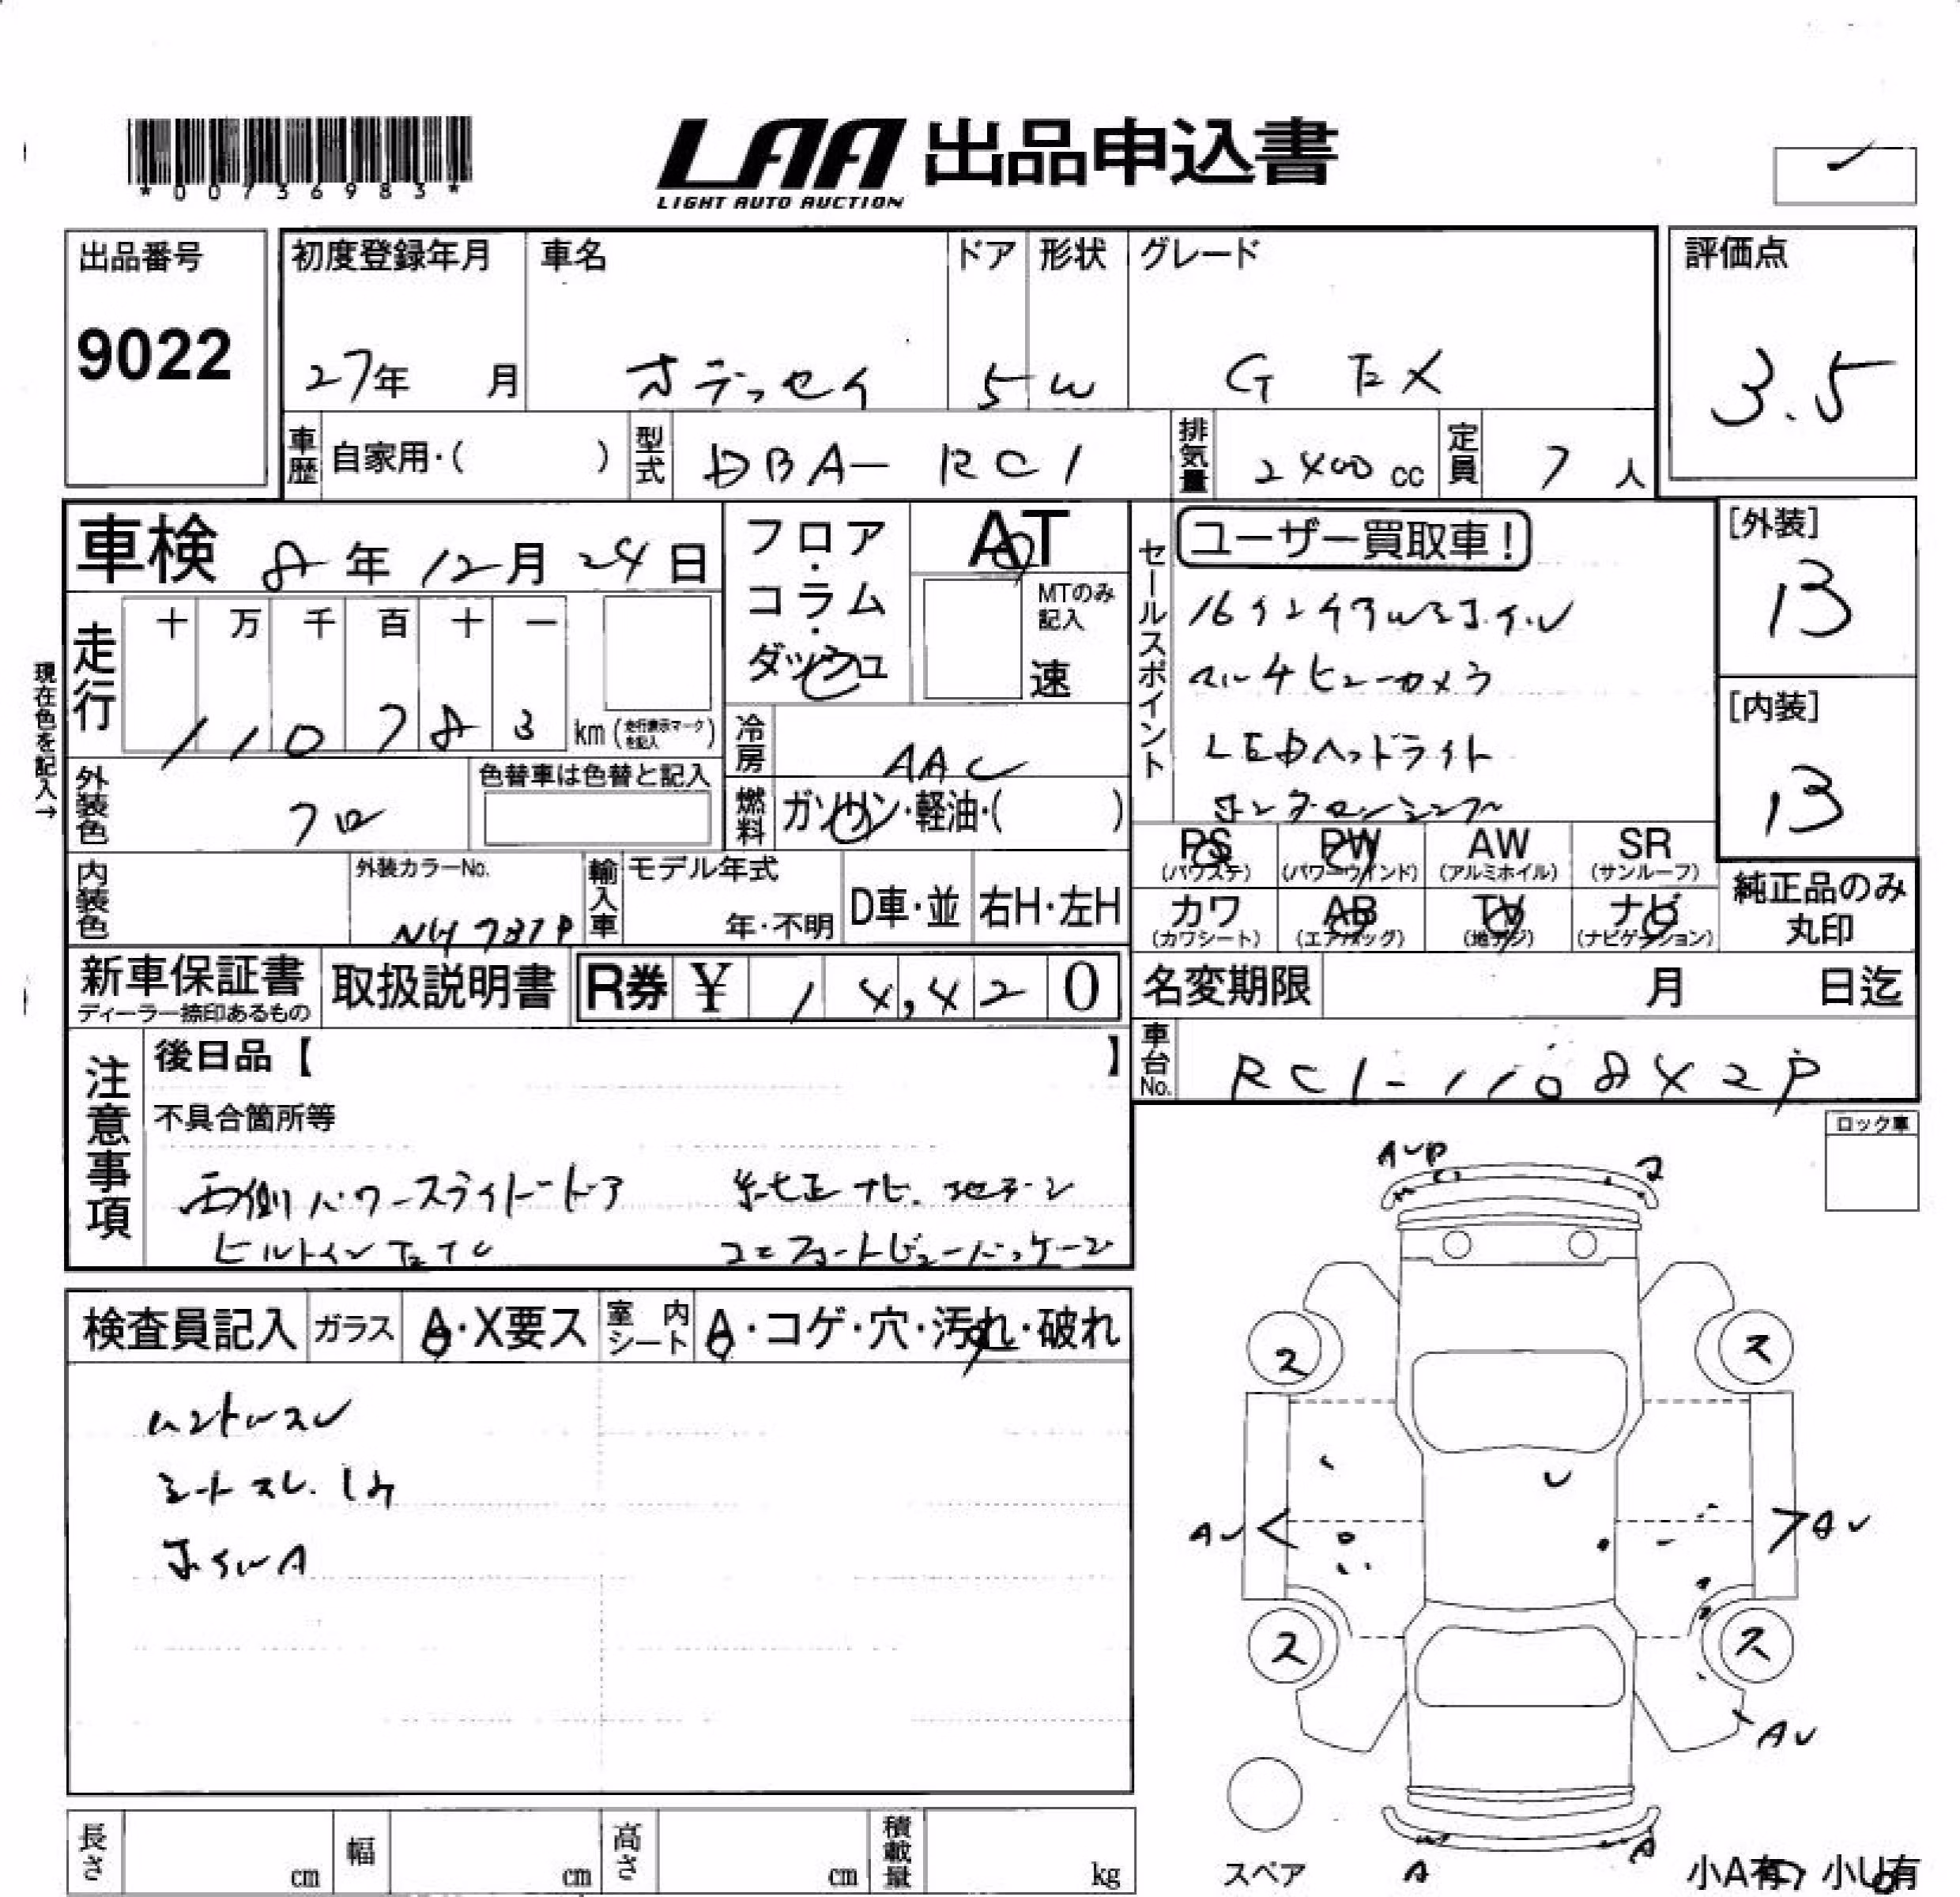 *00736983*
LAA 出品申込書
LIGHT AUTO AUCTION
出品番号
9022
初度登録年月
27年 月
車名
オデッセイ
ドア
5
形状
W
グレード
G EX
評価点
3.5
車歴 自家用・( )
型式 DBA-RC1
排気量 2400 cc
定員 7 人
車検 8年12月24日
フロア・コラム・ダッシュ
AT
MTのみ記入
速
セールスポイント
ユーザー買取車!
16インチアルミホイール
マルチビューカメラ
LEDヘッドライト
ホンダセンシング
[外装]
13
[内装]
13
現在色を記入→
走行
十 万 千 百 十 一
110783 km (走行表示マークを記入)
冷房 AAC
外装色 クロ
色替車は色替と記入
燃料 ガソリン・軽油・( )
PS (パワステ)
PW (パワーウインド)
AW (アルミホイル)
SR (サンルーフ)
内装色
外装カラーNo.
NH731P
輸入車
モデル年式
年・不明
D車・並
右H・左H
カワ (カワシート)
AB (エアバッグ)
TV (地デジ)
ナビ (ナビゲーション)
純正品のみ丸印
新車保証書
ディーラー捺印あるもの
取扱説明書
R券 ¥ 14,420
名変期限 月 日迄
車台No.
注意事項
後日品【 】
不具合箇所等
両側パワースライドドア 純正ナビ.地デジ
ビルトインETC コンフォートビューパッケージ
ロック車
検査員記入
ガラス A・X要ス
室内シート A・コゲ・穴・汚れ・破れ
ハンドルスレ
シートスレ.シミ
ホイルA
AUP
ス
ス
ス
AU
AU
ス
ス
AU
スペア
A
A
小A有 小U有
長さ cm
幅 cm
高さ cm
積載量 kg